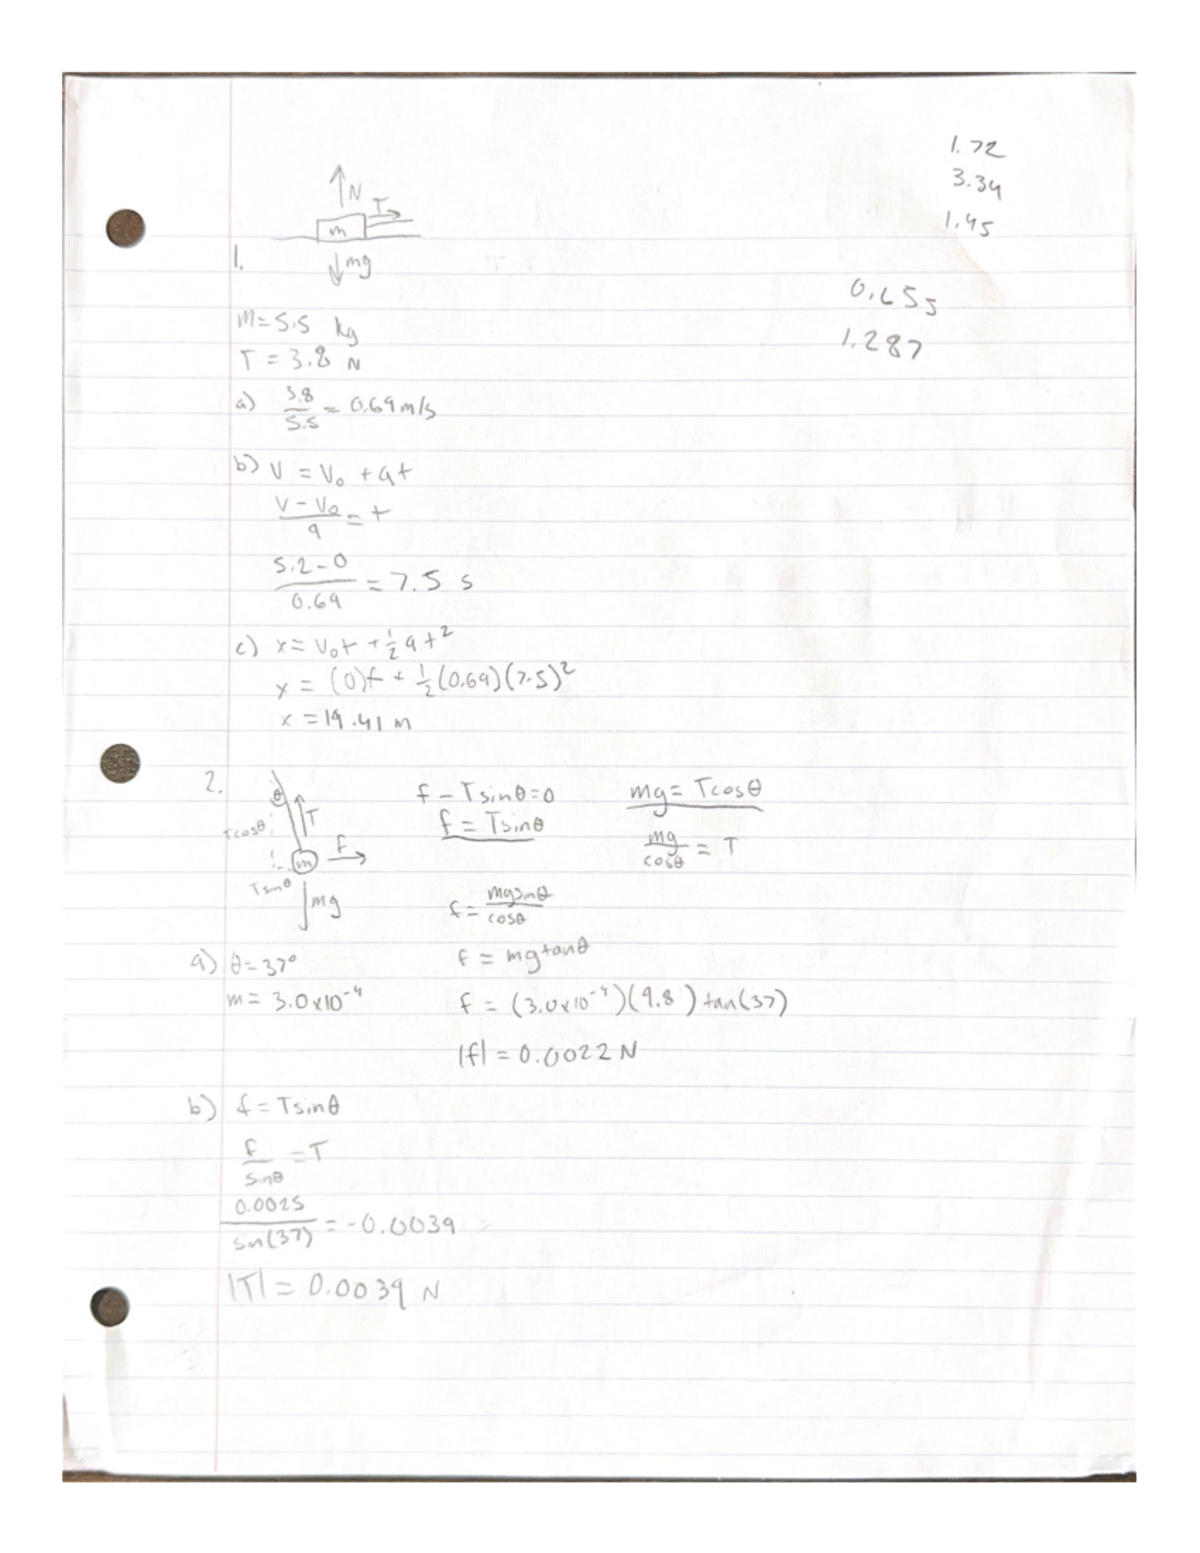 1.72
3.34
1.45
N
T
m
1. mg
0.655
1.287
m=5.5 kg
T = 3.8 N
a) 3.8/5.5 = 0.69 m/s
b) V = V₀ + at
(V - V₀)/a = t
(5.2-0)/0.69 = 7.5 s
c) x = V₀t + ½at²
x = (0)t + ½(0.69)(7.5)²
x = 19.41 m
2. θ T Tcosθ m F Tsinθ mg
f - Tsinθ=0
f = Tsinθ
mg = Tcosθ
mg/cosθ = T
f = mgsinθ/cosθ
f = mgtanθ
a) θ=37°
m = 3.0x10⁻⁴
f = (3.0x10⁻⁴)(9.8) tan(37)
|f| = 0.0022 N
b) f = Tsinθ
f/sinθ = T
0.0025/sin(37) = -0.0039
|T| = 0.0039 N